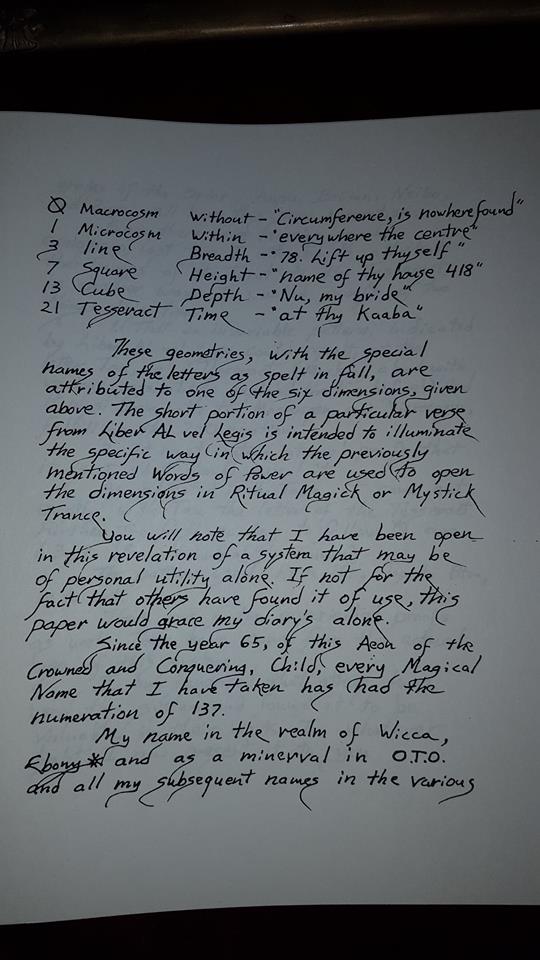 0 Macrocosm Without - "Circumference, is nowhere found"
1 Microcosm Within - "everywhere the centre"
3 line Breadth - "78. Lift up thyself"
7 Square Height - "name of thy house 418"
13 Cube Depth - "Nu, my bride"
21 Tesseract Time - "at thy Kaaba"
These geometries, with the special
names of the letters as spelt in full, are
attributed to one of the six dimensions, given
above. The short portion of a particular verse
from Liber AL vel Legis is intended to illuminate
the specific way in which the previously
mentioned Words of Power are used to open
the dimensions in Ritual Magick or Mystick
Trance.
You will note that I have been open
in this revelation of a system that may be
of personal utility alone. If not for the
fact that others have found it of use, this
paper would grace my diary's alone.
Since the year 65, of this Aeon of the
Crowned and Conquering, Child, every Magical
Name that I have taken has had the
numeration of 137.
My name in the realm of Wicca,
Ebony* and as a minerval in O.T.O.
and all my subsequent names in the various